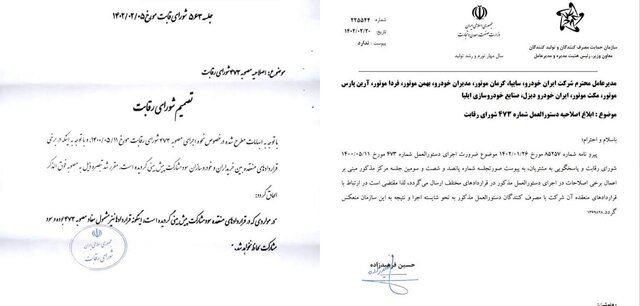 جلسه ۵۶۳ شورای رقابت مورخ ۱۴۰۲/۰۲/۰۵
موضوع: اصلاحیه مصوبه ۴۷۳ شورای رقابت
تصمیم شورای رقابت
با توجه به ابهامات مطرح شده در خصوص نحوه اجرای مصوبه ۴۷۳ شورای رقابت مورخ ۱۴۰۰/۰۵/۱۱، و با توجه به اینکه در برخی
قراردادهای منعقده بین خریداران و خودروسازان سود مشارکت پیش بینی گردیده است، مقرر شد تبصره ذیل به مصوبه فوق الذکر
الحاق گردد:
در مواردی که در قراردادهای منعقده سود مشارکت پیش بینی گردیده است، اینگونه قراردادها نیز مشمول مفاد مصوبه ۴۷۳ بوده و سود
مشارکت لحاظ نخواهد شد.
جمهوری اسلامی ایران
شورای رقابت
شماره: ۲۲۵۵۴۴
تاریخ: ۱۴۰۲/۰۲/۲۰
پیوست: ندارد
جمهوری اسلامی ایران
وزارت صنعت، معدن و تجارت
سال مهار تورم و رشد تولید
سازمان حمایت مصرف کنندگان و تولید کنندگان
معاون وزیر، رئیس هیئت مدیره و مدیرعامل
مدیرعامل محترم شرکت ایران خودرو، سایپا، کرمان موتور، مدیران خودرو، بهمن موتور، فردا موتور، آرین پارس
موتور، مکث موتور، ایران خودرو دیزل، صنایع خودروسازی ایلیا
موضوع: ابلاغ اصلاحیه دستورالعمل شماره ۴۷۳ شورای رقابت
باسلام و احترام؛
پیرو نامه شماره ۸۵۲۵۷ مورخ ۱۴۰۲/۰۱/۲۶ موضوع ضرورت اجرای دستورالعمل شماره ۴۷۳ مورخ ۱۴۰۰/۰۵/۱۱
شورای رقابت و پاسخگویی به مشتریان، به پیوست صورتجلسه شماره پانصد و شصت و سومین جلسه مرکز مذکور مبنی بر
اعمال برخی اصلاحات در اجرای دستورالعمل مذکور در قراردادهای مختلف ارسال می‌گردد، لذا مقتضی است در ارتباط با
قراردادهای منعقده آن شرکت با مصرف کنندگان دستورالعمل مذکور به نحو شایسته اجرا و نتیجه به این سازمان منعکس
گردد.
حسین فرهیدزاده